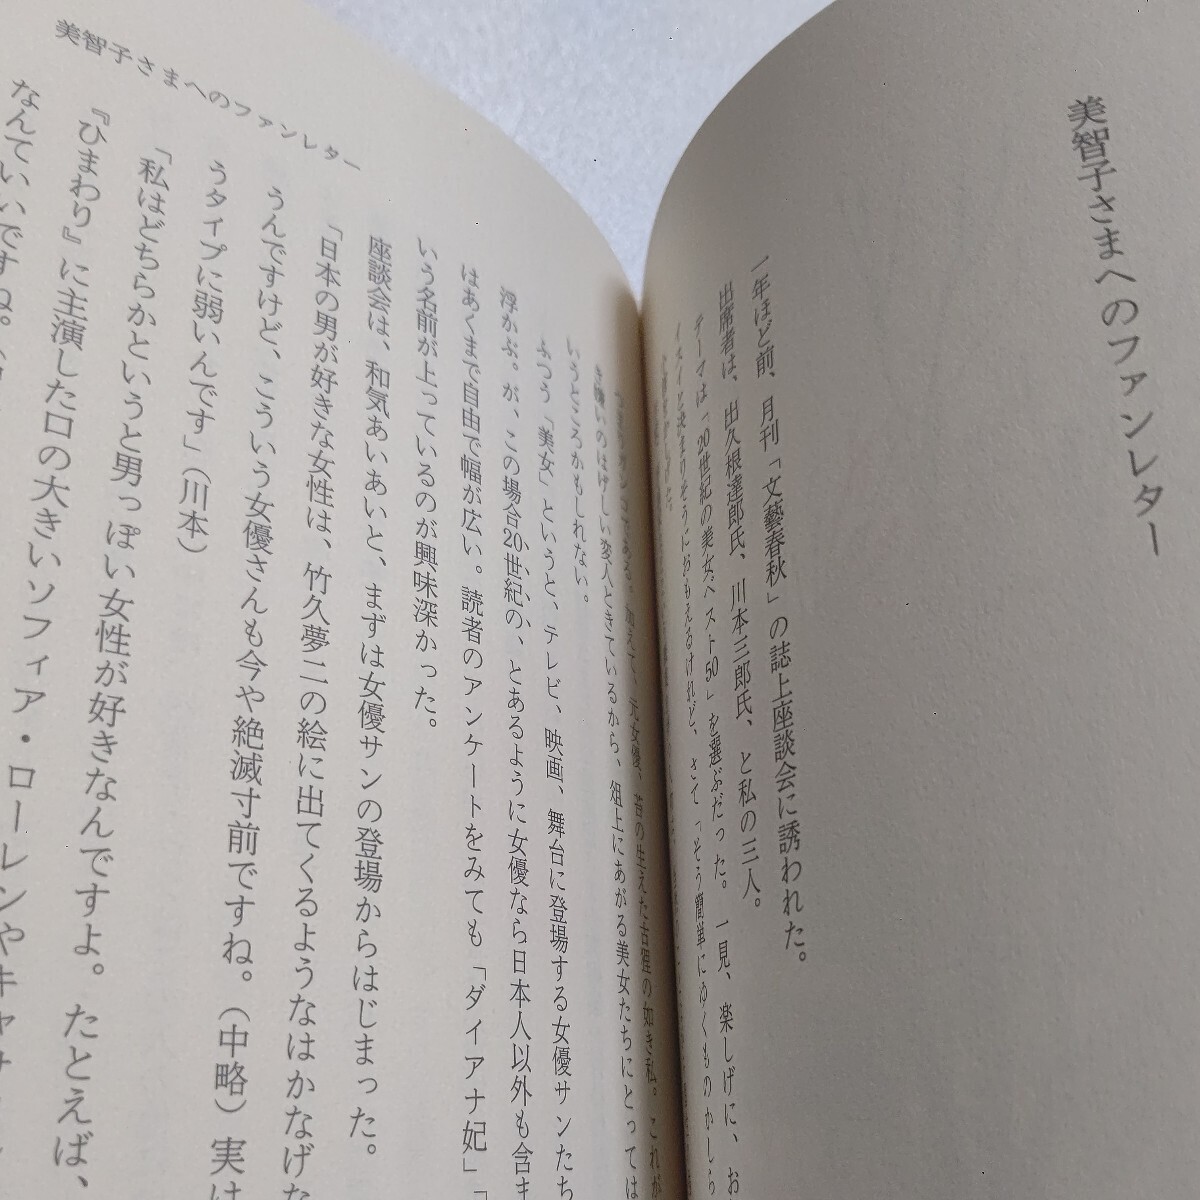 美智子さまへのファンレター
一年ほど前、月刊「文藝春秋」の誌上座談会に誘われた。
出席者は、出久根達郎氏、川本三郎氏、と私の三人。
テーマは「20世紀の美女ベスト50」を選ぶだった。一見、楽しげに、お
イスイと決まりそうにおもえるけれど、さて「そう簡単にゆくものかしら
元女優、苔の生えた古狸の如き私。これが
き嫌いのはげしい変人ときているから、俎上にあがる美女たちにとっては
いうところかもしれない。
ふつう「美女」というと、テレビ、映画、舞台に登場する女優サンたち
浮かぶ。が、この場合20世紀の、とあるように女優なら日本人以外も含ま
はあくまで自由で幅が広い。読者のアンケートをみても「ダイアナ妃」「
いう名前が上っているのが興味深かった。
座談会は、和気あいあいと、まずは女優サンの登場からはじまった。
「日本の男が好きな女性は、竹久夢二の絵に出てくるようなはかなげな
うんですけど、こういう女優さんも今や絶滅寸前ですね。（中略）実は
うタイプに弱いんです」（川本）
「私はどちらかというと男っぽい女性が好きなんですよ。たとえば、
『ひまわり』に主演した口の大きいソフィア・ローレンやキャサ
なんていいですね。
美智子さまへのファンレター